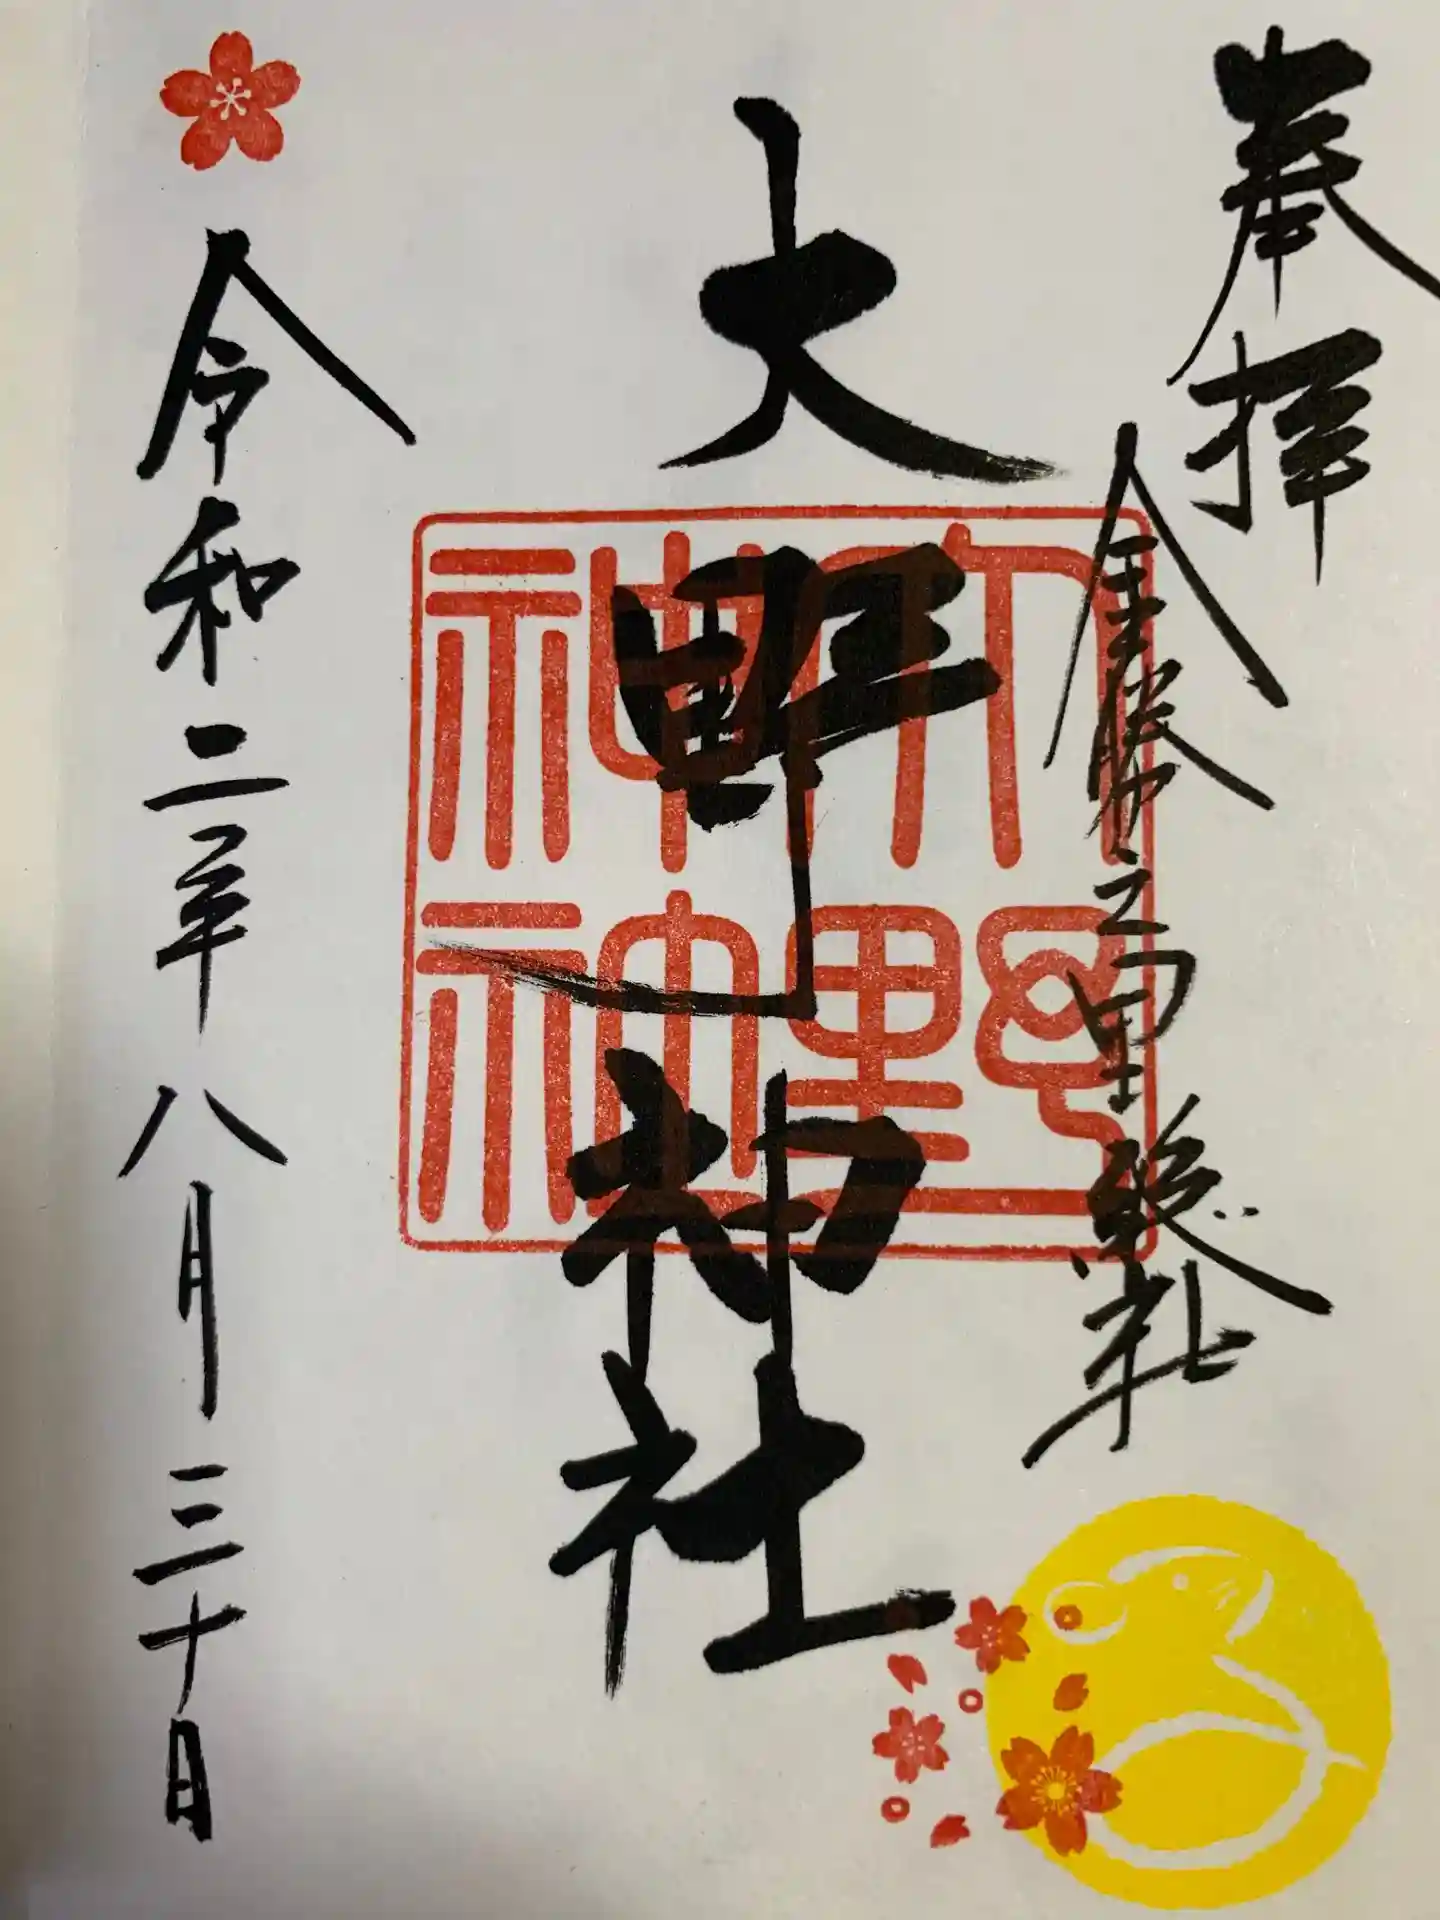 奉拝
金勝之里総社
大野神社
大野神社
令和二年八月三十日